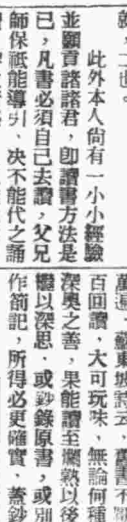 就，二也。
此外本人尙有一小小經驗
並願貢諸諸君，卽讀書方法是
已，凡書必須自己去讀，父兄
師保祇能導引，決不能代之誦
萬遍　蘇東坡詩云，舊書不厭
百回讀，大可玩味，無論何種
深奧之善，果能讀至爛熟以後
繼以深思，或鈔錄原書，或別
作簡記，所得必更確實，蓋鈔